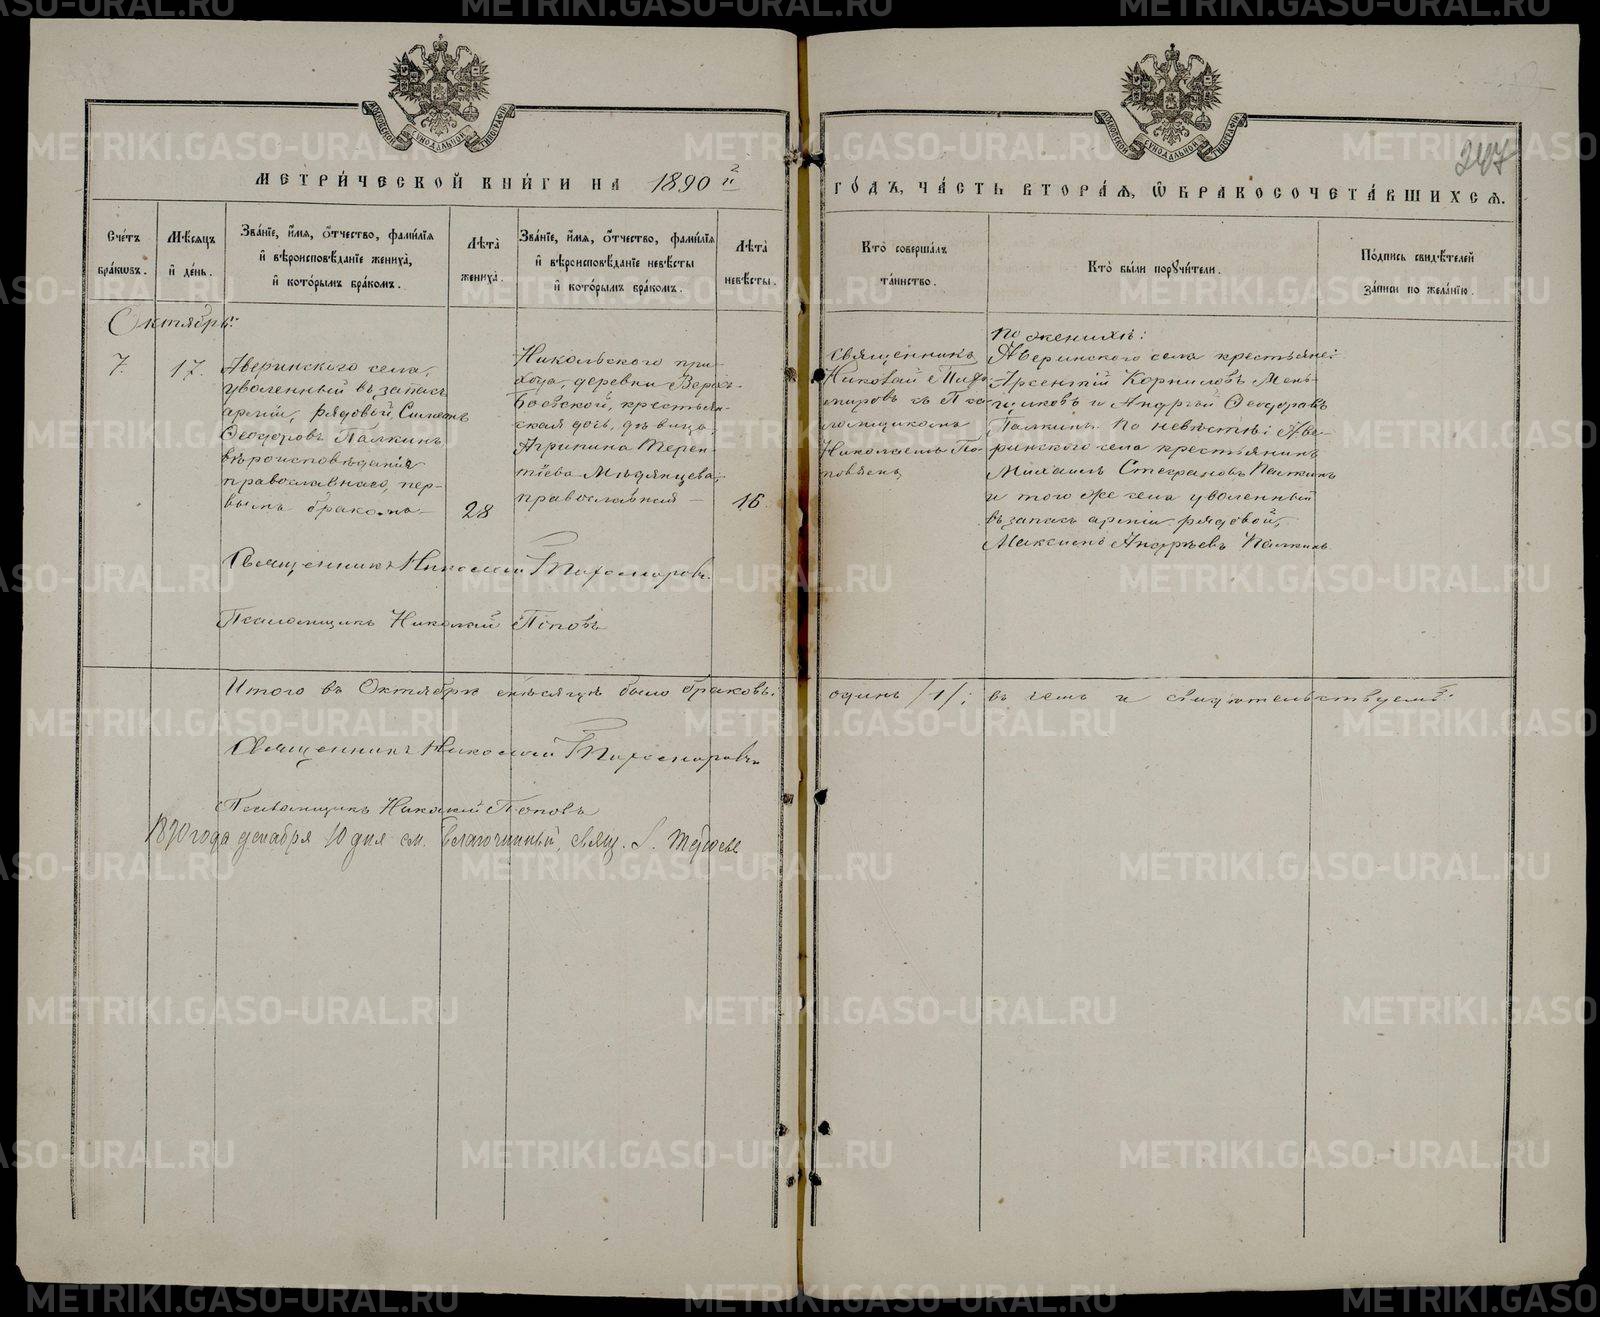 МОСКОВСКОЙ СѴНОДАЛЬНОЙ ТИПОГРАФІИ
МОСКОВСКОЙ СѴНОДАЛЬНОЙ ТИПОГРАФІИ
247
МЕТРИ́ЧЕСКОЙ КНИ́ГИ НА 1890 й
ГО́ДЪ, ЧА́СТЬ ВТОРА́Я, Ѡ БРАКОСОЧЕТА́ВШИХСЯ.
Сче́тъ бра́кѡвъ.
Мѣ́сяцъ и де́нь.
Зва́нїе, и́мя, ѻ́тчество, фами́лїя и вѣроисповѣ́данїе жениха̀, и кото́рымъ бра́комъ.
Лѣ́та жениха̀.
Зва́нїе, и́мя, ѻ́тчество, фами́лїя и вѣроисповѣ́данїе невѣ́сты и кото́рымъ бра́комъ.
Лѣ́та невѣ́сты.
Кто̀ соверша́лъ та́инство.
Кто̀ бы́ли порꙋчи́тели.
По́дпись свидѣ́телей за́писи по жела́нїю.
Октябрь:
7.
17.
Аверинского села,
уволенный въ запасъ
арміи, рядовой Симеонъ
Ѳеодоровъ Палкинъ
вѣроисповѣданія
православнаго, пер-
вымъ бракомъ
28
Никольского при-
хода, деревни Верхъ-
Боевской, крестьян-
ская дочь, дѣвица,
Агрипина Терен-
тіева Мѣдянцева,
православная
16
Священникъ
Николай Тихо-
мировъ съ Пса-
ломщикомъ
Николаемъ По-
повымъ
По женихѣ:
Аверинского села крестьяне:
Арсентій Корниловъ Мень-
щиковъ и Андрей Ѳеодоровъ
Палкинъ. По невѣстѣ: Аве-
ринского села крестьянинъ
Михаилъ Стефановъ Палкинъ
и того же села уволенный
въ запасъ арміи рядовой,
Максимъ Андреевъ Палкинъ
Священникъ Николай Тихомировъ.
Псаломщикъ Николай Поповъ
Итого въ Октябрѣ мѣсяцѣ было браковъ:
одинъ /1/; въ чемъ и свидѣтельствуемъ:
Священникъ Николай Тихомировъ
Псаломщикъ Николай Поповъ
1890 года декабря 10 дня см. благочинный, свящ.
METRIKI.GASO-URAL.RU